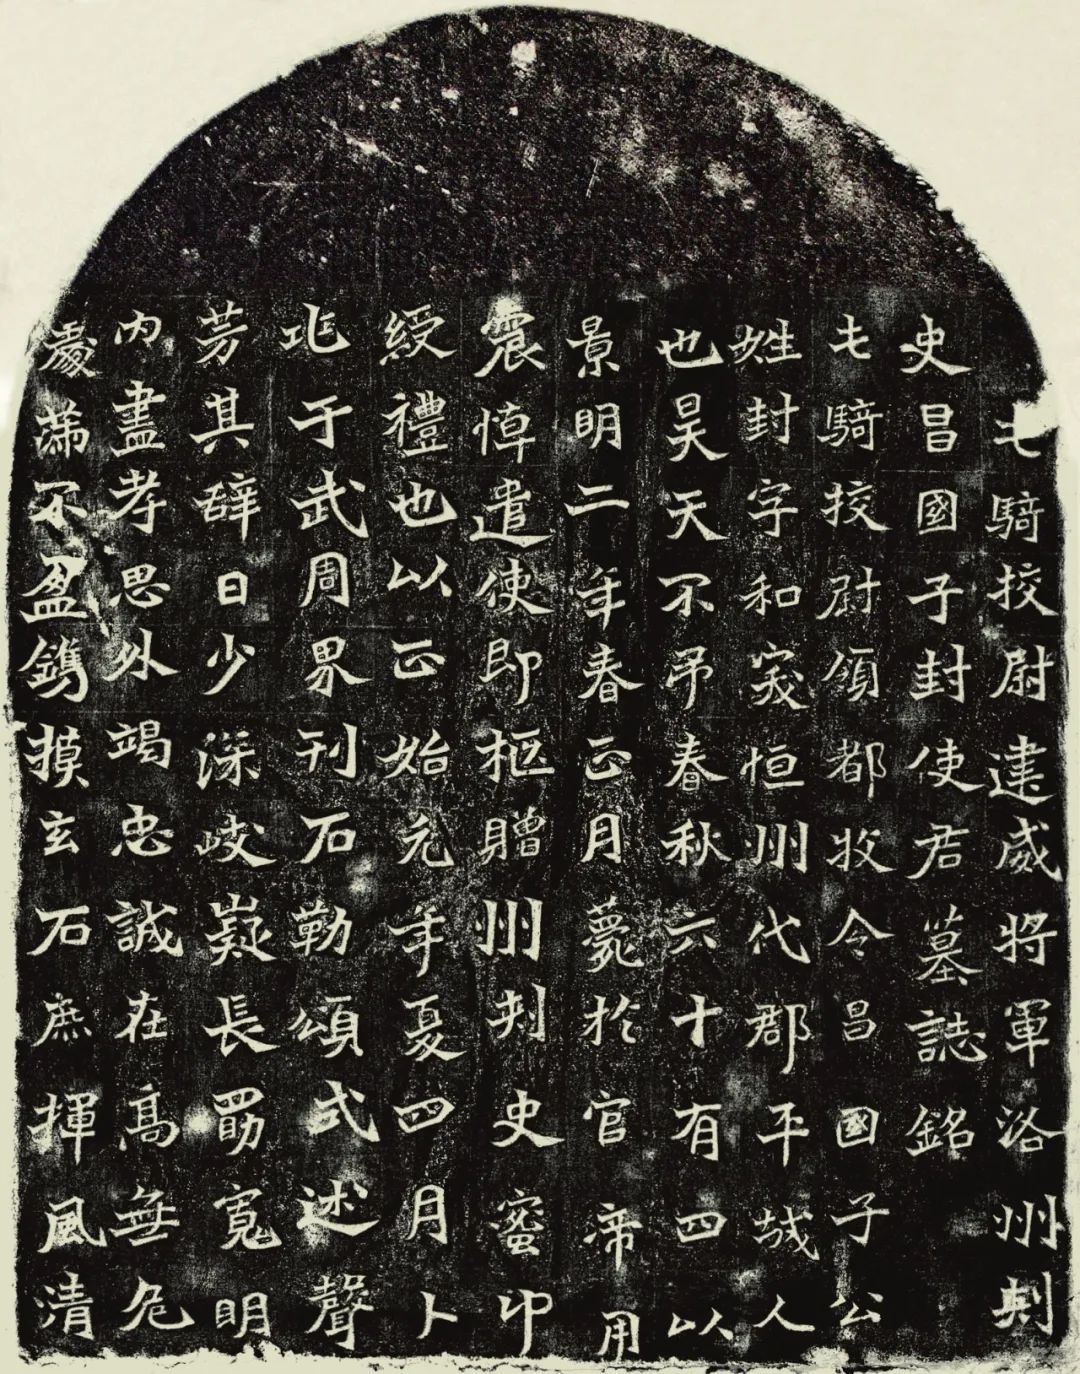 屯騎挍尉建威將軍洛州刾
史昌國子封使君墓誌銘
屯騎挍尉領都牧令昌國子公
姓封字和突恒州代郡平城人
也昊天不弔春秋六十有四以
景明二年春正月薨於官帝用
震悼遣使即柩贈州刾史蜜印
綬禮也以正始元年夏四月卜
兆于武周界刊石勒頌式述聲
芳其辞曰少深岐嶷長勖寬明
內盡孝思外竭忠誠在高無危
處滿不盈鐫摸玄石庶揮風清